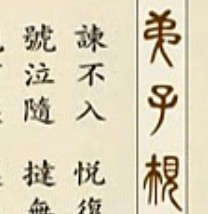 弟子規
諫不入 悅復
號泣隨 撻無